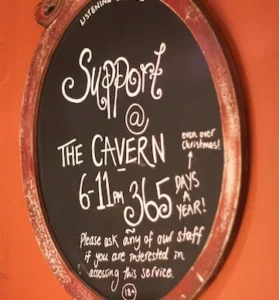 LISTENING
Support
@
THE CAVERN
even over
Christmas!
6-11PM 365 DAYS
A
YEAR!
Please ask any of our staff
if you are interested in
accessing this service.
18+